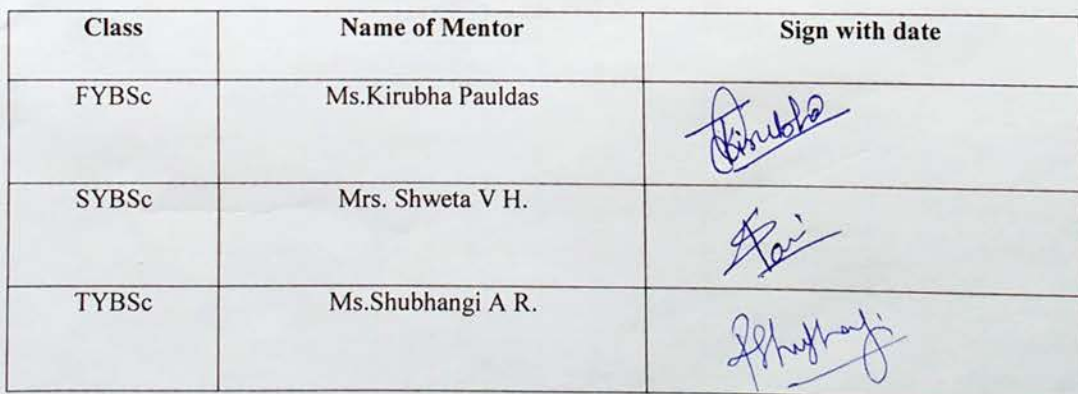 Class Name of Mentor Sign with date
FYBSc Ms.Kirubha Pauldas Kirubha
SYBSc Mrs. Shweta V H.
TYBSc Ms.Shubhangi A R.